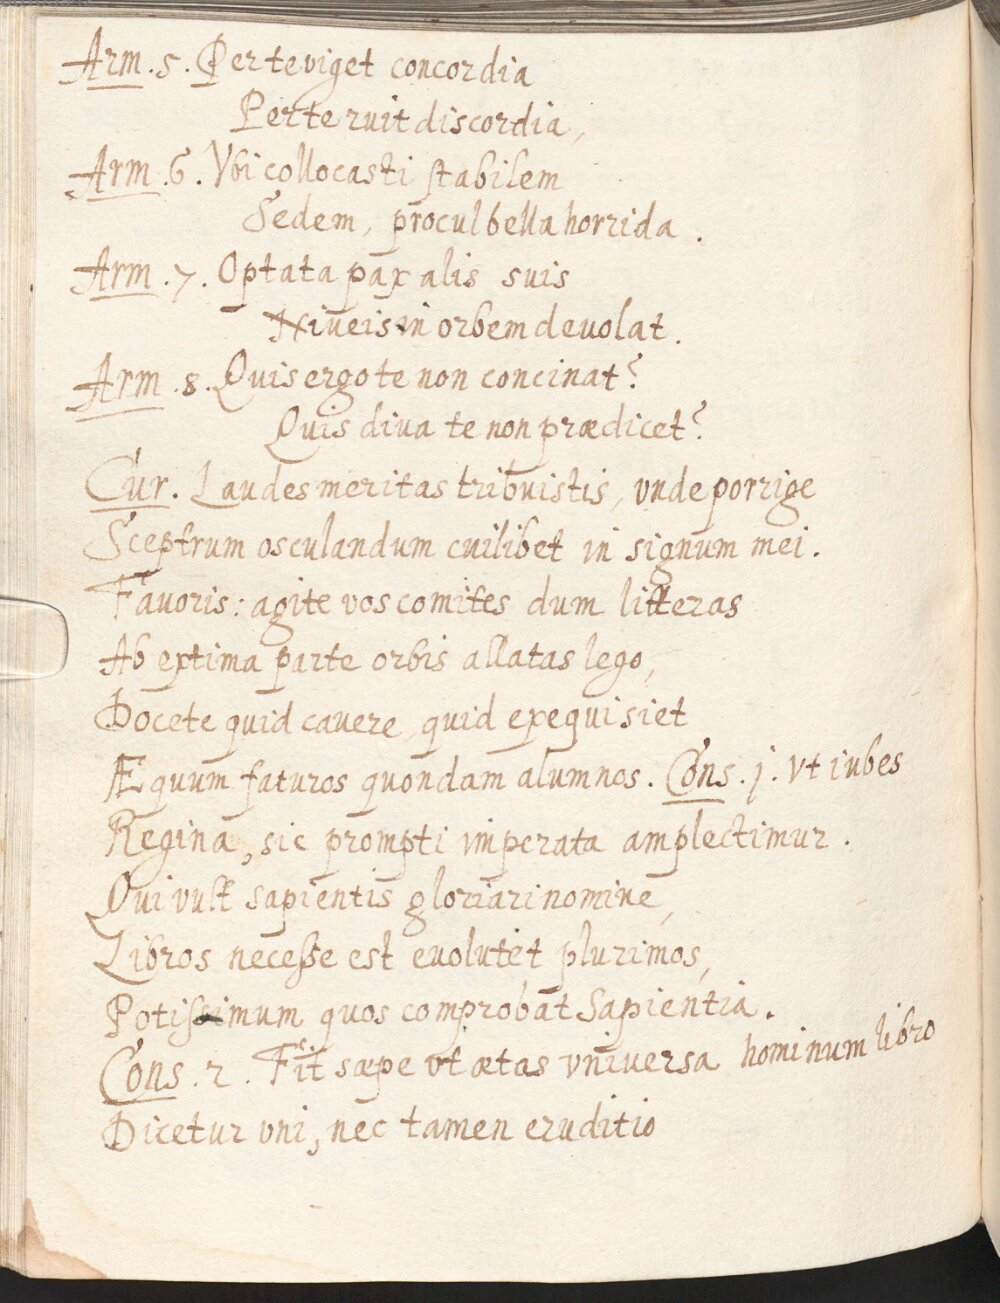 Arm. 5. Per te viget concordia
Per te ruit discordia,
Arm. 6. Vbi collocasti stabilem
Sedem, procul bella horrida.
Arm. 7. Optata pax alis suis
Niueis in orbem deuolat.
Arm. 8. Quis ergo te non concinat?
Quis diua te non prædicet?
Cur. Laudes meritas tribuistis, vnde porrige
Sceptrum osculandum cuilibet in signum mei.
Fauoris: agite vos comites dum litteras
Ab extima parte orbis allatas lego,
Docete quid cauere, quid exequi siet
Æquum faturos quondam alumnos. Cons. j. Vt iubes
Regina, sic prompti imperata amplectimur.
Qui vult sapientis gloriari nomine,
Libros necesse est euolutet plurimos,
Potissimum quos comprobat Sapientia.
Cons. 2. Fit sæpe vt ætas vniuersa hominum libro
Dicetur vni, nec tamen eruditio